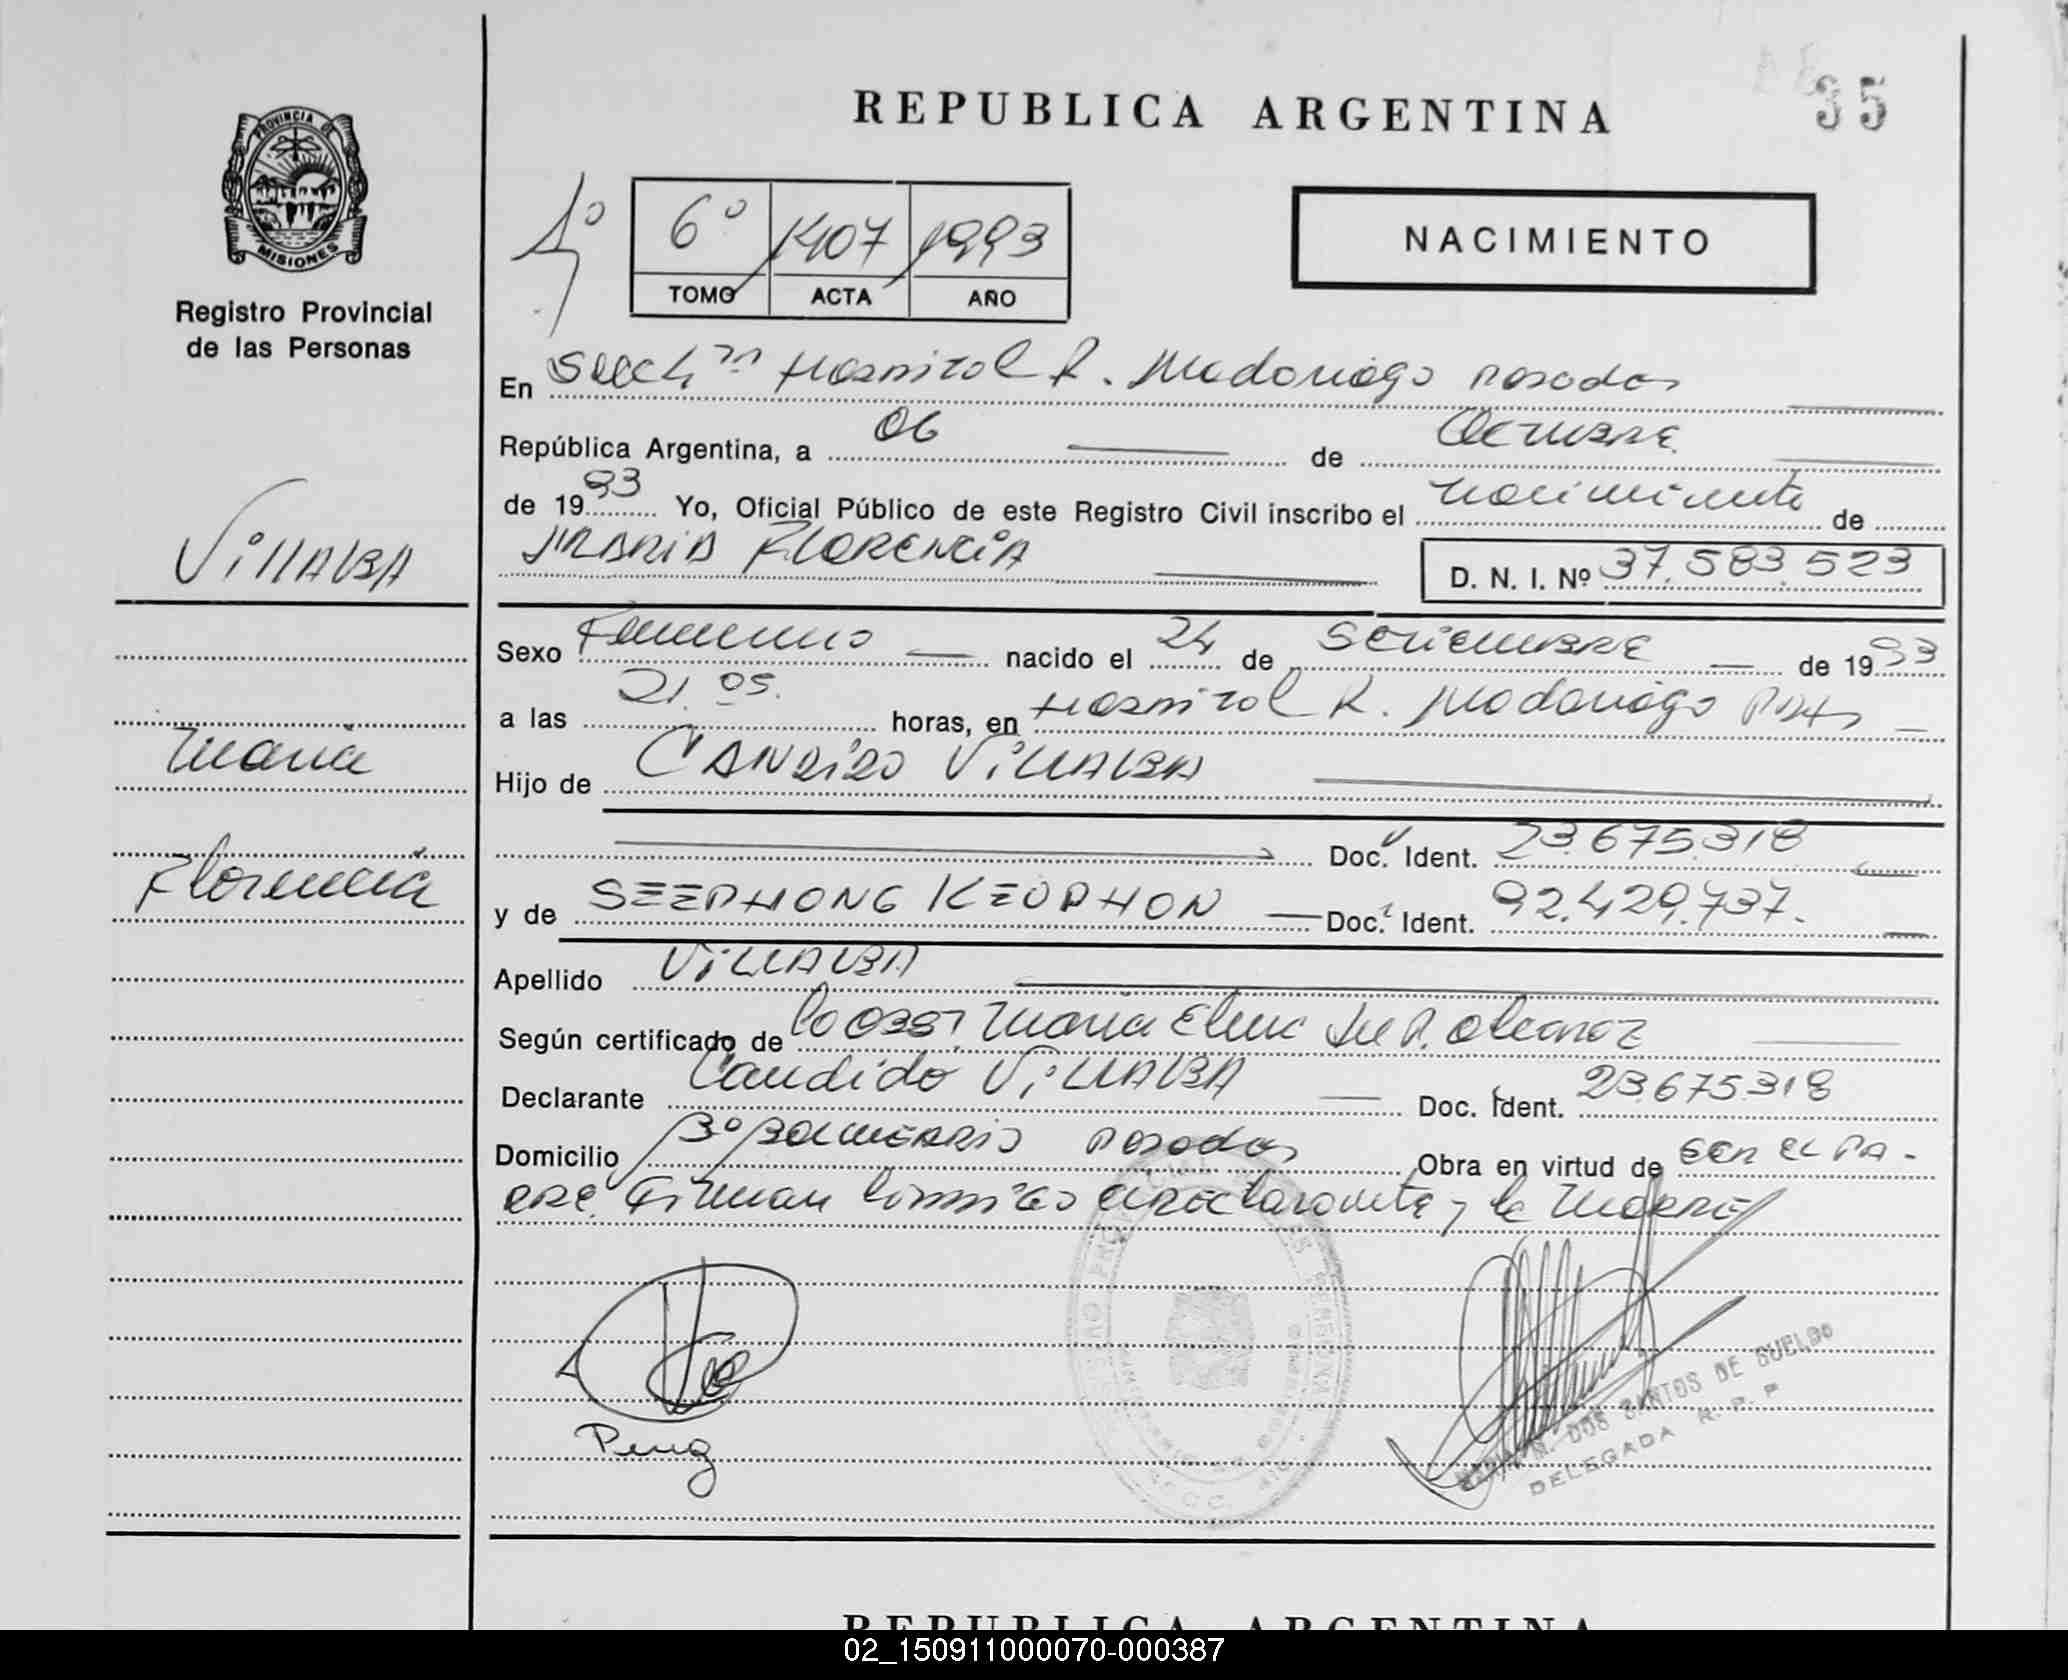 35
REPUBLICA ARGENTINA
PROVINCIA DE
MISIONES
Registro Provincial
de las Personas
1º
6º 1407 1993
TOMO ACTA AÑO
NACIMIENTO
En Hospital R. Madariaga Posadas
República Argentina, a 06 de Octubre
de 1993 Yo, Oficial Público de este Registro Civil inscribo el nacimiento de
Villalba
MARIA FLORENCIA
D. N. I. Nº 37.583.523
Sexo Femenino nacido el 24 de Setiembre de 1993
a las 21.05. horas, en Hospital R. Madariaga Pdas
Maria
Hijo de CANDIDO VILLALBA
Doc. Ident. 23.675.318
Florencia
y de SEEPHONG KEOPHON Doc. Ident. 92.429.737.
Apellido VILLALBA
Según certificado de Maria Elena
Declarante Candido VILLALBA Doc. Ident. 23675318
Domicilio Bº Posadas Obra en virtud de SER EL PA-
DRE. Firman la MADRE
Peng
DOS SANTOS DE SUELDO
DELEGADA R. P. P
REPUBLICA ARGENTINA
02_150911000070-000387